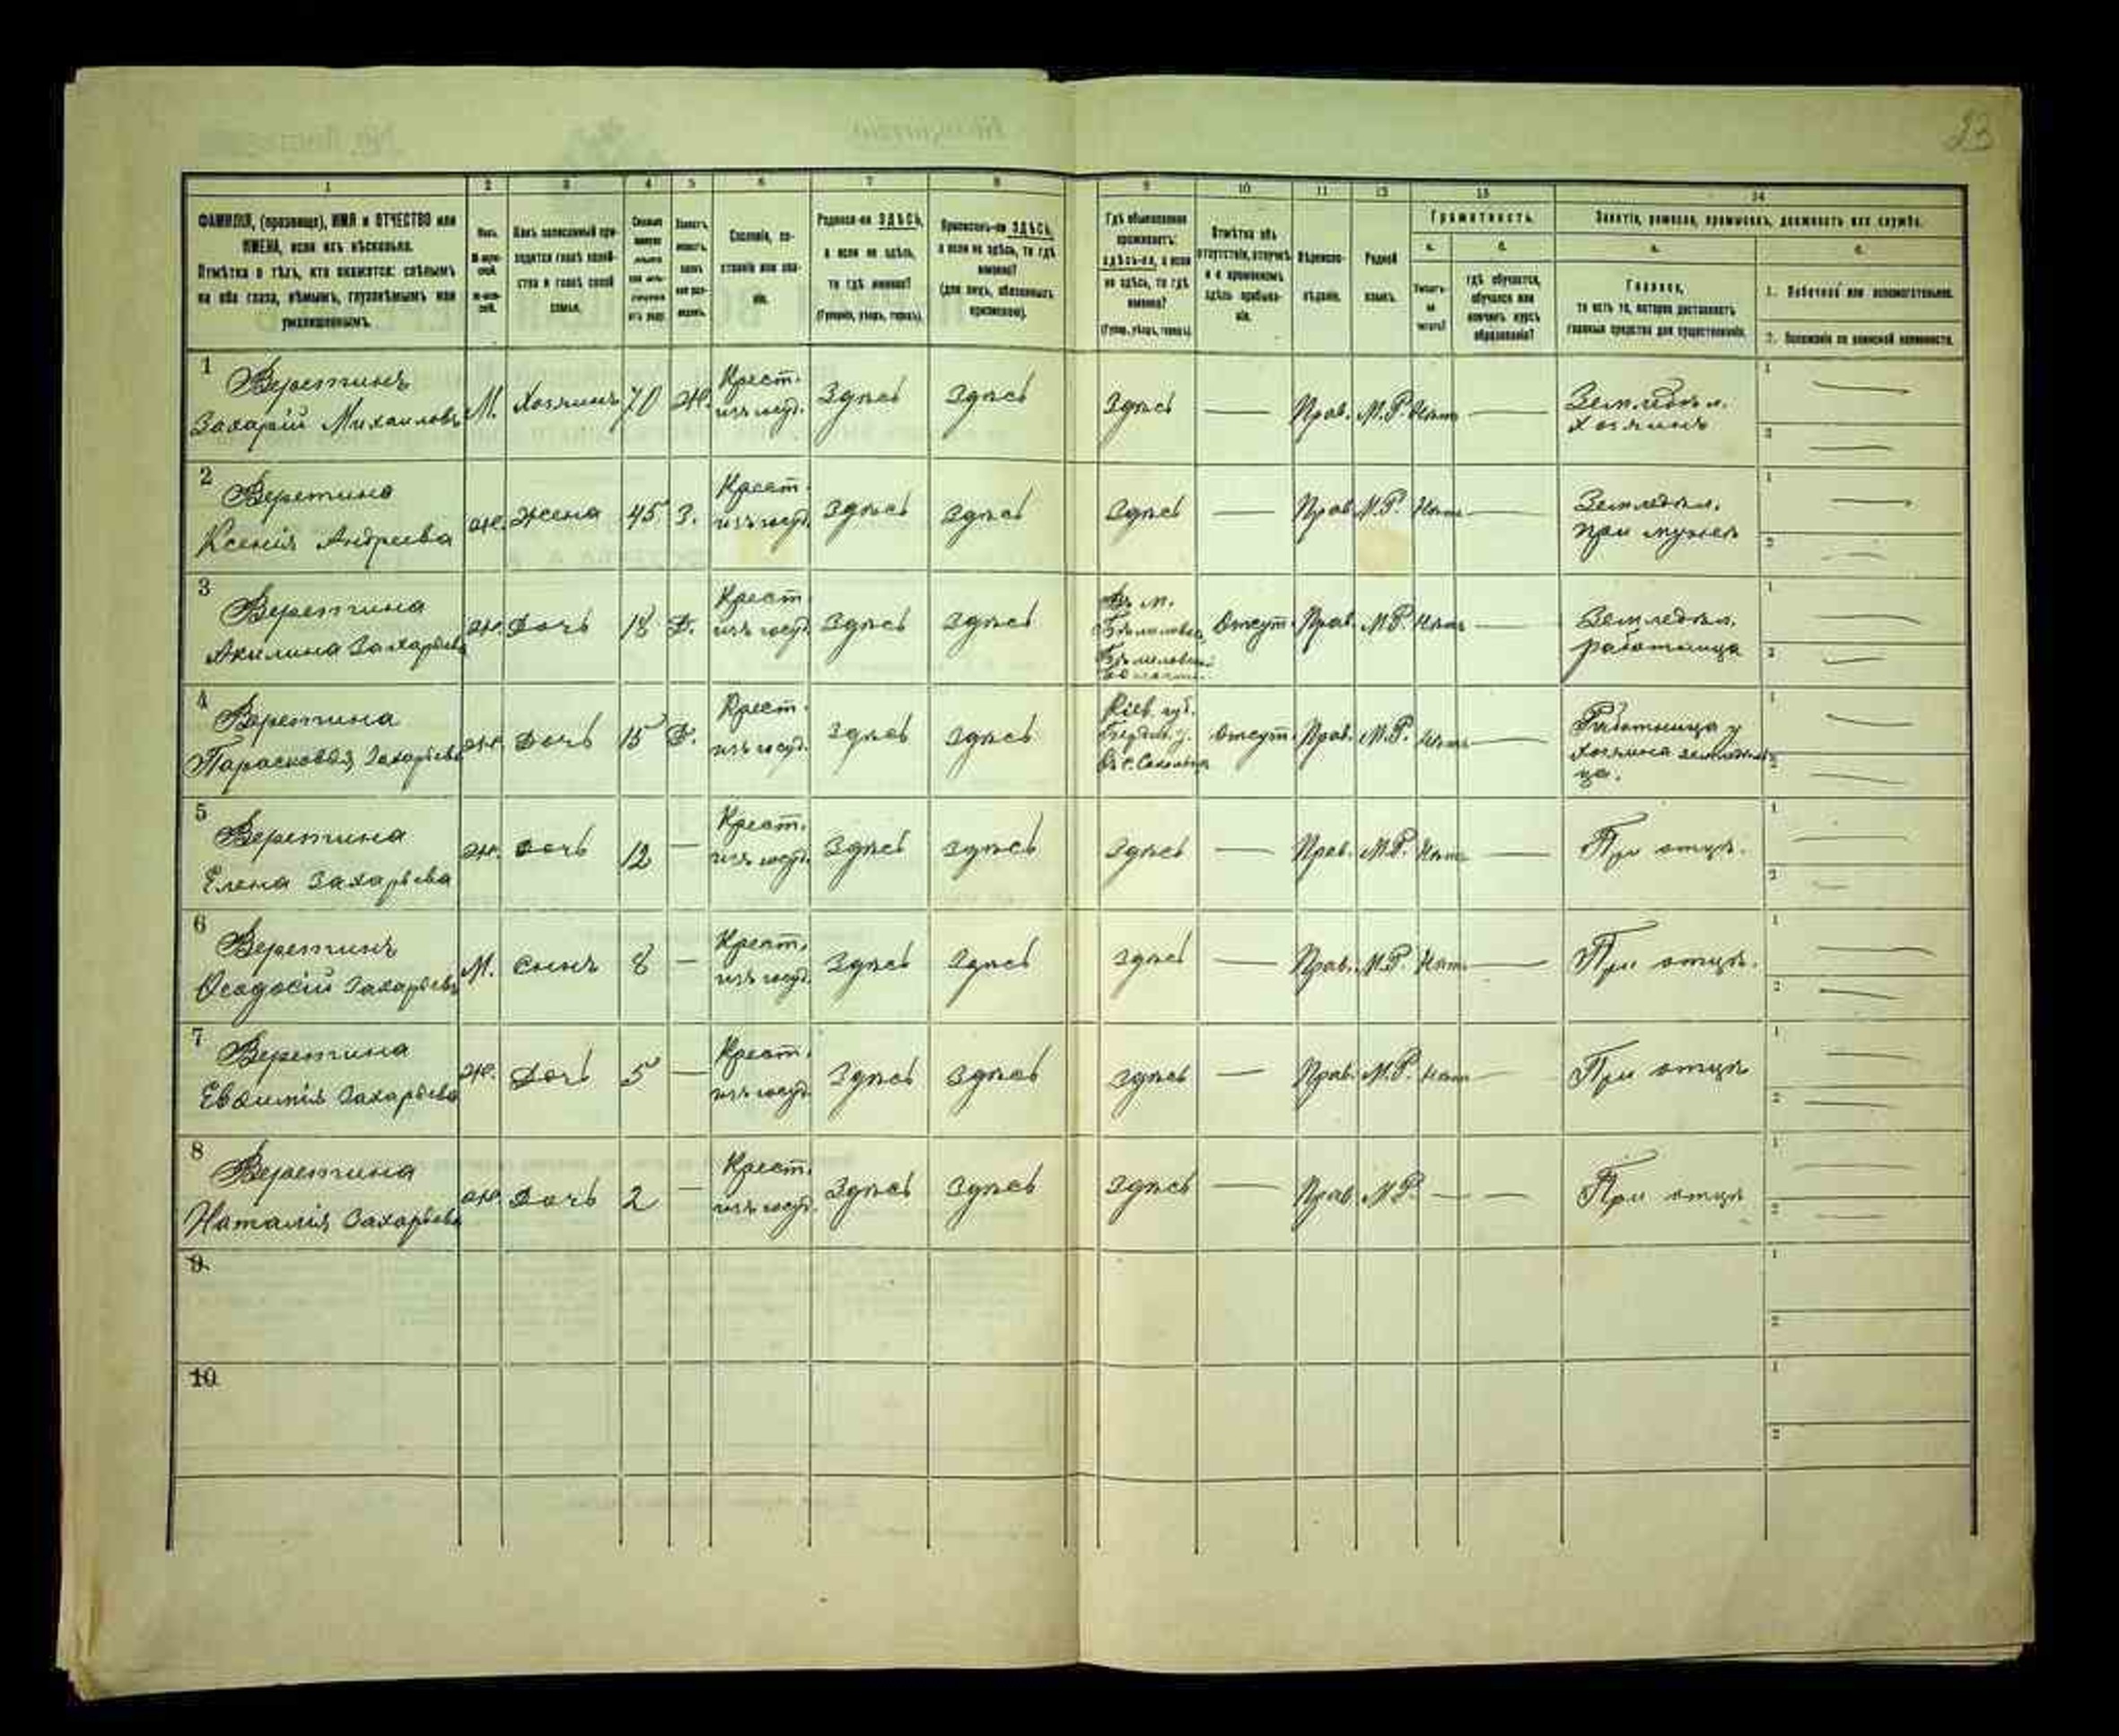 23
1 2 3 4 5 6 7 8 9 10 11 12 13 14
ФАМИЛІЯ, (прозвище), ИМЯ и ОТЧЕСТВО или
ИМЕНА, если ихъ нѣсколько.
Отмѣтка о тѣхъ, кто окажется: слѣпымъ
на оба глаза, нѣмымъ, глухонѣмымъ или
умалишеннымъ.
Полъ.
М-муж-
ской.
Ж-жен-
скій.
Какъ записанный при-
ходится главѣ хозяй-
ства и главѣ своей
семьи.
Сословіе, со-
стояніе или зва-
ніе.
Родился-ли ЗДѢСЬ,
а если не здѣсь,
то гдѣ именно?
(Губернія, уѣздъ, городъ).
Приписанъ-ли ЗДѢСЬ,
а если не здѣсь, то гдѣ
именно?
(для лицъ, обязанныхъ
припискою).
Гдѣ обыкновенно
проживаетъ:
здѣсь-ли, а если
не здѣсь, то гдѣ
именно?
(Губер., уѣздъ, городъ).
Отмѣтка объ
отсутствіи, отлучкѣ
и о временномъ
здѣсь пребыва-
ніи.
Вѣроиспо-
вѣданіе.
Родной
языкъ.
Грамотность.
а.
Умѣетъ-
ли
читать?
б.
гдѣ обучается,
обучался или
кончилъ курсъ
образованія?
Занятіе, ремесло, промыселъ, должность или служба.
а.
Главное,
то есть то, которое доставляетъ
главныя средства для существованія.
б.
1. Побочное или вспомогательное.
2. Положеніе по воинской повинности.
1 Веретинъ
Захарій Михаиловъ М. Хозяинъ 70 Ж. Крест. изъ госуд. Здѣсь Здѣсь Здѣсь — Прав. М.Р. Нѣтъ — Земледѣл. Хозяинъ 1 — 2 —
2 Веретина
Ксенія Андреева Ж. Жена 45 З. Крест. изъ госуд. Здѣсь Здѣсь Здѣсь — Прав. М.Р. Нѣтъ — Земледѣл. при мужѣ 1 — 2 —
3 Веретина
Акилина Захарьева Ж. Дочь 18 Д. Крест. изъ госуд. Здѣсь Здѣсь Въ м. Отсут. Прав. М.Р. Нѣтъ — Земледѣл. работница 1 — 2 —
4 Веретина
Парасковія Захарьева Ж. Дочь 15 Д. Крест. изъ госуд. Здѣсь Здѣсь Кіев. губ. Бердич. у. Отсут. Прав. М.Р. Нѣтъ — Работница у хозяина 1 — 2 —
5 Веретина
Елена Захарьева Ж. Дочь 12 — Крест. изъ госуд. Здѣсь Здѣсь Здѣсь — Прав. М.Р. Нѣтъ — При отцѣ. 1 — 2 —
6 Веретинъ
Ѳеодосій Захарьевъ М. Сынъ 8 — Крест. изъ госуд. Здѣсь Здѣсь Здѣсь — Прав. М.Р. Нѣтъ — При отцѣ. 1 — 2 —
7 Веретина
Евфимія Захарьева Ж. Дочь 5 — Крест. изъ госуд. Здѣсь Здѣсь Здѣсь — Прав. М.Р. Нѣтъ — При отцѣ 1 — 2 —
8 Веретина
Наталія Захарьева Ж. Дочь 2 — Крест. изъ госуд. Здѣсь Здѣсь Здѣсь — Прав. М.Р. — — При отцѣ 1 — 2 —
9 1 2
10 1 2